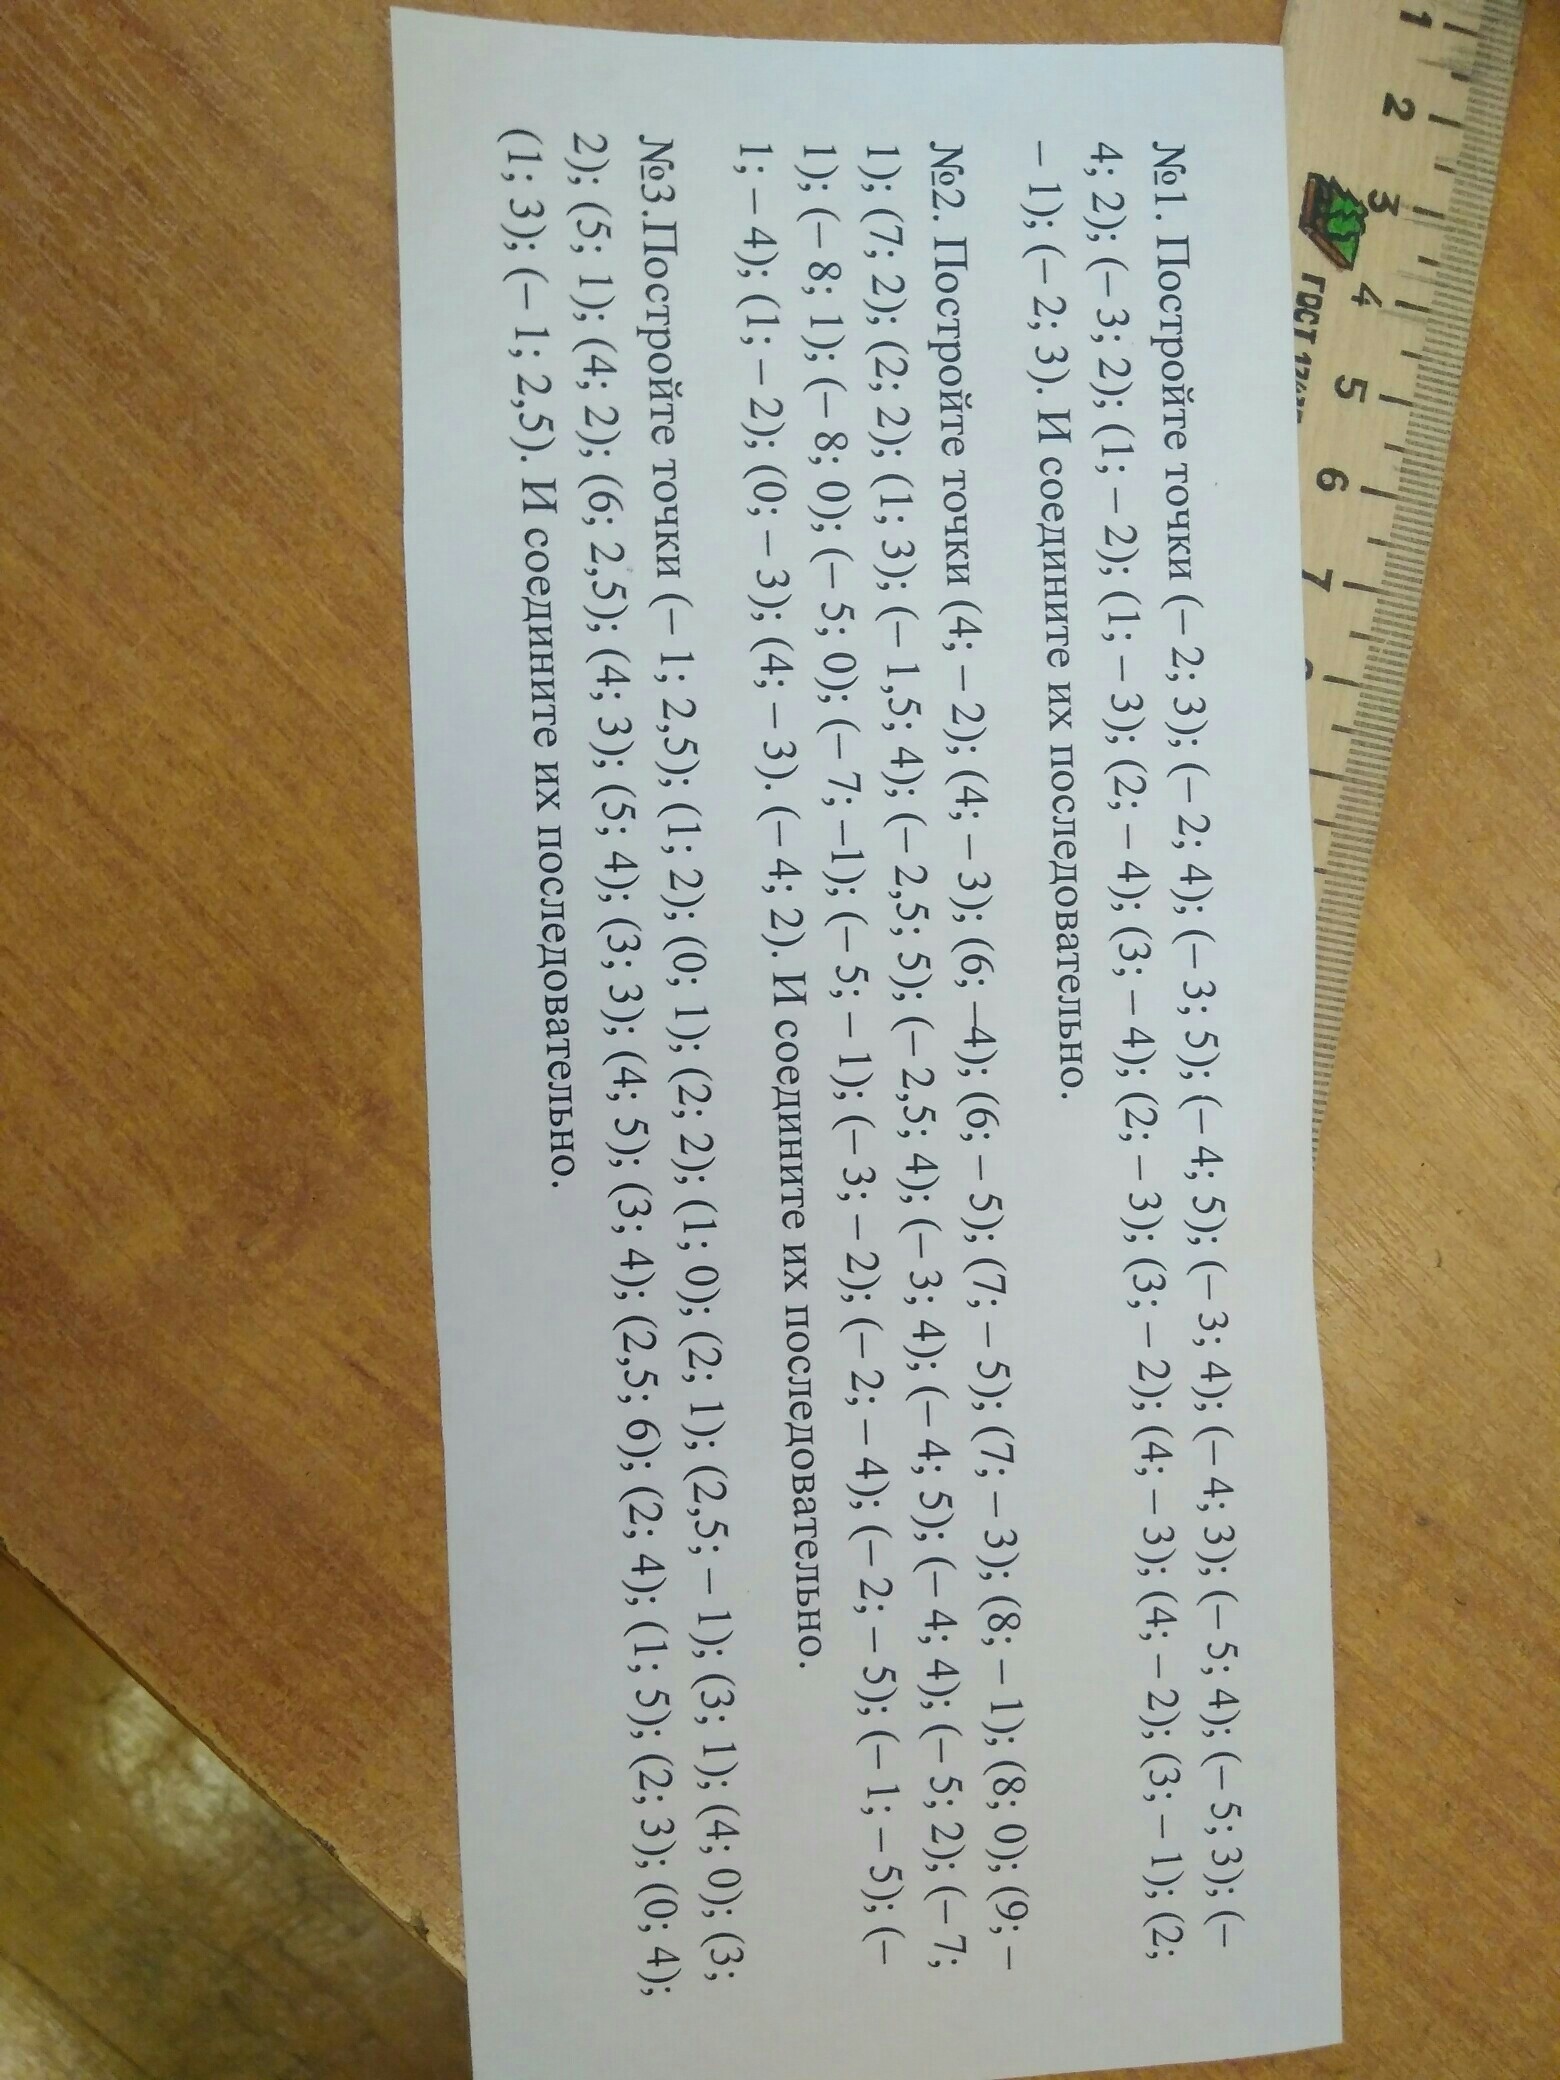 №1. Постройте точки (– 2; 3); (– 2; 4); (– 3; 5); (– 4; 5); (– 3; 4); (– 4; 3); (– 5; 4); (– 5; 3); (–
4; 2); (– 3; 2); (1; – 2); (1; – 3); (2; – 4); (3; – 4); (2; – 3); (3; – 2); (4; – 3); (4; – 2); (3; – 1); (2;
– 1); (– 2; 3). И соедините их последовательно.
№2. Постройте точки (4; – 2); (4; – 3); (6; –4); (6; – 5); (7; – 5); (7; – 3); (8; – 1); (8; 0); (9; –
1); (7; 2); (2; 2); (1; 3); (– 1,5; 4); (– 2,5; 5); (– 2,5; 4); (– 3; 4); (– 4; 5); (– 4; 4); (– 5; 2); (– 7;
1); (– 8; 1); (– 8; 0); (– 5; 0); (– 7; –1); (– 5; – 1); (– 3; – 2); (– 2; – 4); (– 2; – 5); (– 1; – 5); (–
1; – 4); (1; – 2); (0; – 3); (4; – 3). (– 4; 2). И соедините их последовательно.
№3.Постройте точки (– 1; 2,5); (1; 2); (0; 1); (2; 2); (1; 0); (2; 1); (2,5; – 1); (3; 1); (4; 0); (3;
2); (5; 1); (4; 2); (6; 2,5); (4; 3); (5; 4); (3; 3); (4; 5); (3; 4); (2,5; 6); (2; 4); (1; 5); (2; 3); (0; 4);
(1; 3); (– 1; 2,5). И соедините их последовательно.
1 2 3 4 5 6 7
ГОСТ